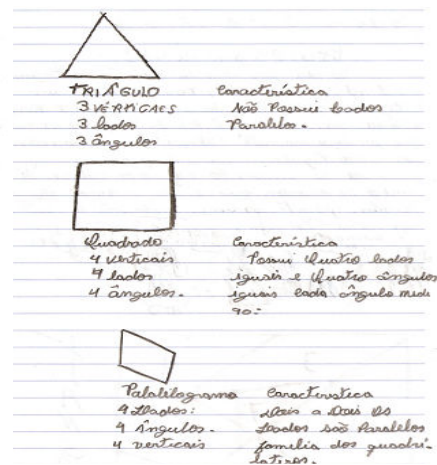 TRIÂGULO
3 VÉRTIGAES
3 lados
3 ângulos
Característica
Não Possui lados
Paralelos.
Quadrado
4 verticais
4 lados
4 ângulos.
Característica
Possui Quatro lados
iguais e Quatro ângulos
iguais cada ângulo mede
90º
Palalelogramo
4 Lados:
4 Ângulos.
4 verticais
Caractirustica
Dois a Dois Os
Lados são Paralelos
familia dos quadri-
lateros.